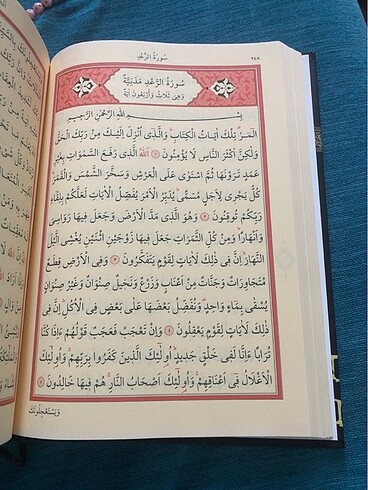 ٢٤٨
سُورَةُ الرَّعْدِ
سُورَةُ الرَّعْدِ مَدَنِيَّةٌ
وَهِىَ ثَلَاثٌ وَأَرْبَعُونَ اٰيَةً
بِسْمِ اللّٰهِ الرَّحْمٰنِ الرَّحِيمِ
الٓمٓرٰ تِلْكَ اٰيَاتُ الْكِتَابِ وَالَّذِى اُنْزِلَ اِلَيْكَ مِنْ رَبِّكَ الْحَقُّ
وَلٰكِنَّ اَكْثَرَ النَّاسِ لَا يُؤْمِنُونَ ١ اَللّٰهُ الَّذِى رَفَعَ السَّمٰوَاتِ بِغَيْرِ
عَمَدٍ تَرَوْنَهَا ثُمَّ اسْتَوٰى عَلَى الْعَرْشِ وَسَخَّرَ الشَّمْسَ وَالْقَمَرَ
كُلٌّ يَجْرِى لِاَجَلٍ مُسَمًّى يُدَبِّرُ الْاَمْرَ يُفَصِّلُ الْاٰيَاتِ لَعَلَّكُمْ بِلِقَاءِ
رَبِّكُمْ تُوقِنُونَ ٢ وَهُوَ الَّذِى مَدَّ الْاَرْضَ وَجَعَلَ فِيهَا رَوَاسِىَ
وَاَنْهَارًا وَمِنْ كُلِّ الثَّمَرَاتِ جَعَلَ فِيهَا زَوْجَيْنِ اثْنَيْنِ يُغْشِى الَّيْلَ
النَّهَارَ اِنَّ فِى ذٰلِكَ لَاٰيَاتٍ لِقَوْمٍ يَتَفَكَّرُونَ ٣ وَفِى الْاَرْضِ قِطَعٌ
مُتَجَاوِرَاتٌ وَجَنَّاتٌ مِنْ اَعْنَابٍ وَزَرْعٌ وَنَخِيلٌ صِنْوَانٌ وَغَيْرُ صِنْوَانٍ
يُسْقٰى بِمَاءٍ وَاحِدٍ وَنُفَضِّلُ بَعْضَهَا عَلٰى بَعْضٍ فِى الْاُكُلِ اِنَّ فِى
ذٰلِكَ لَاٰيَاتٍ لِقَوْمٍ يَعْقِلُونَ ٤ وَاِنْ تَعْجَبْ فَعَجَبٌ قَوْلُهُمْ ءَاِذَا كُنَّا
تُرَابًا ءَاِنَّا لَفِى خَلْقٍ جَدِيدٍ اُولٰئِكَ الَّذِينَ كَفَرُوا بِرَبِّهِمْ وَاُولٰئِكَ
الْاَغْلَالُ فِى اَعْنَاقِهِمْ وَاُولٰئِكَ اَصْحَابُ النَّارِ هُمْ فِيهَا خَالِدُونَ ٥
وَيَسْتَعْجِلُونَكَ